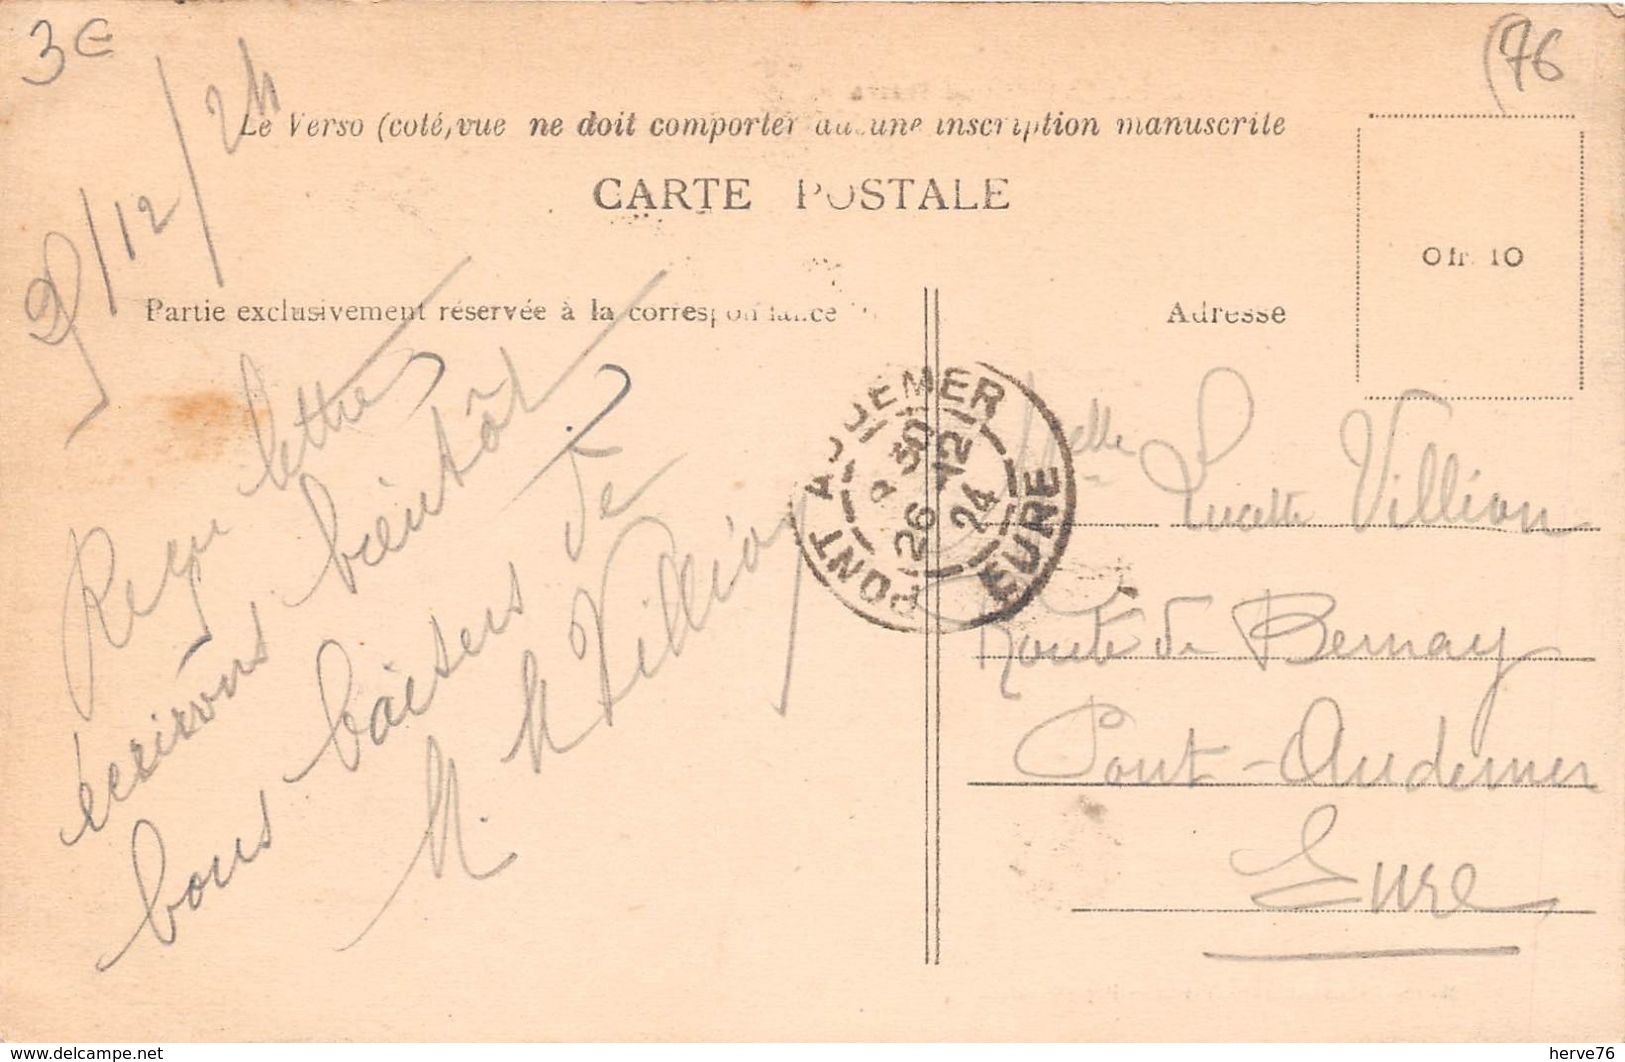 3€
(76
Le Verso (coté, vue ne doit comporter aucune inscription manuscrite
CARTE POSTALE
0 fr. 10
Partie exclusivement réservée à la correspondance
Adresse
/12/24
Reçu lettre
écrirons bientôt
bons baisers de
M. M Villion
PONT AUDEMER
EURE
30
26 12
24
Melle Lucette Villion
Route de Bernay
Pont-Audemer
Eure
www.delcampe.net
herve76